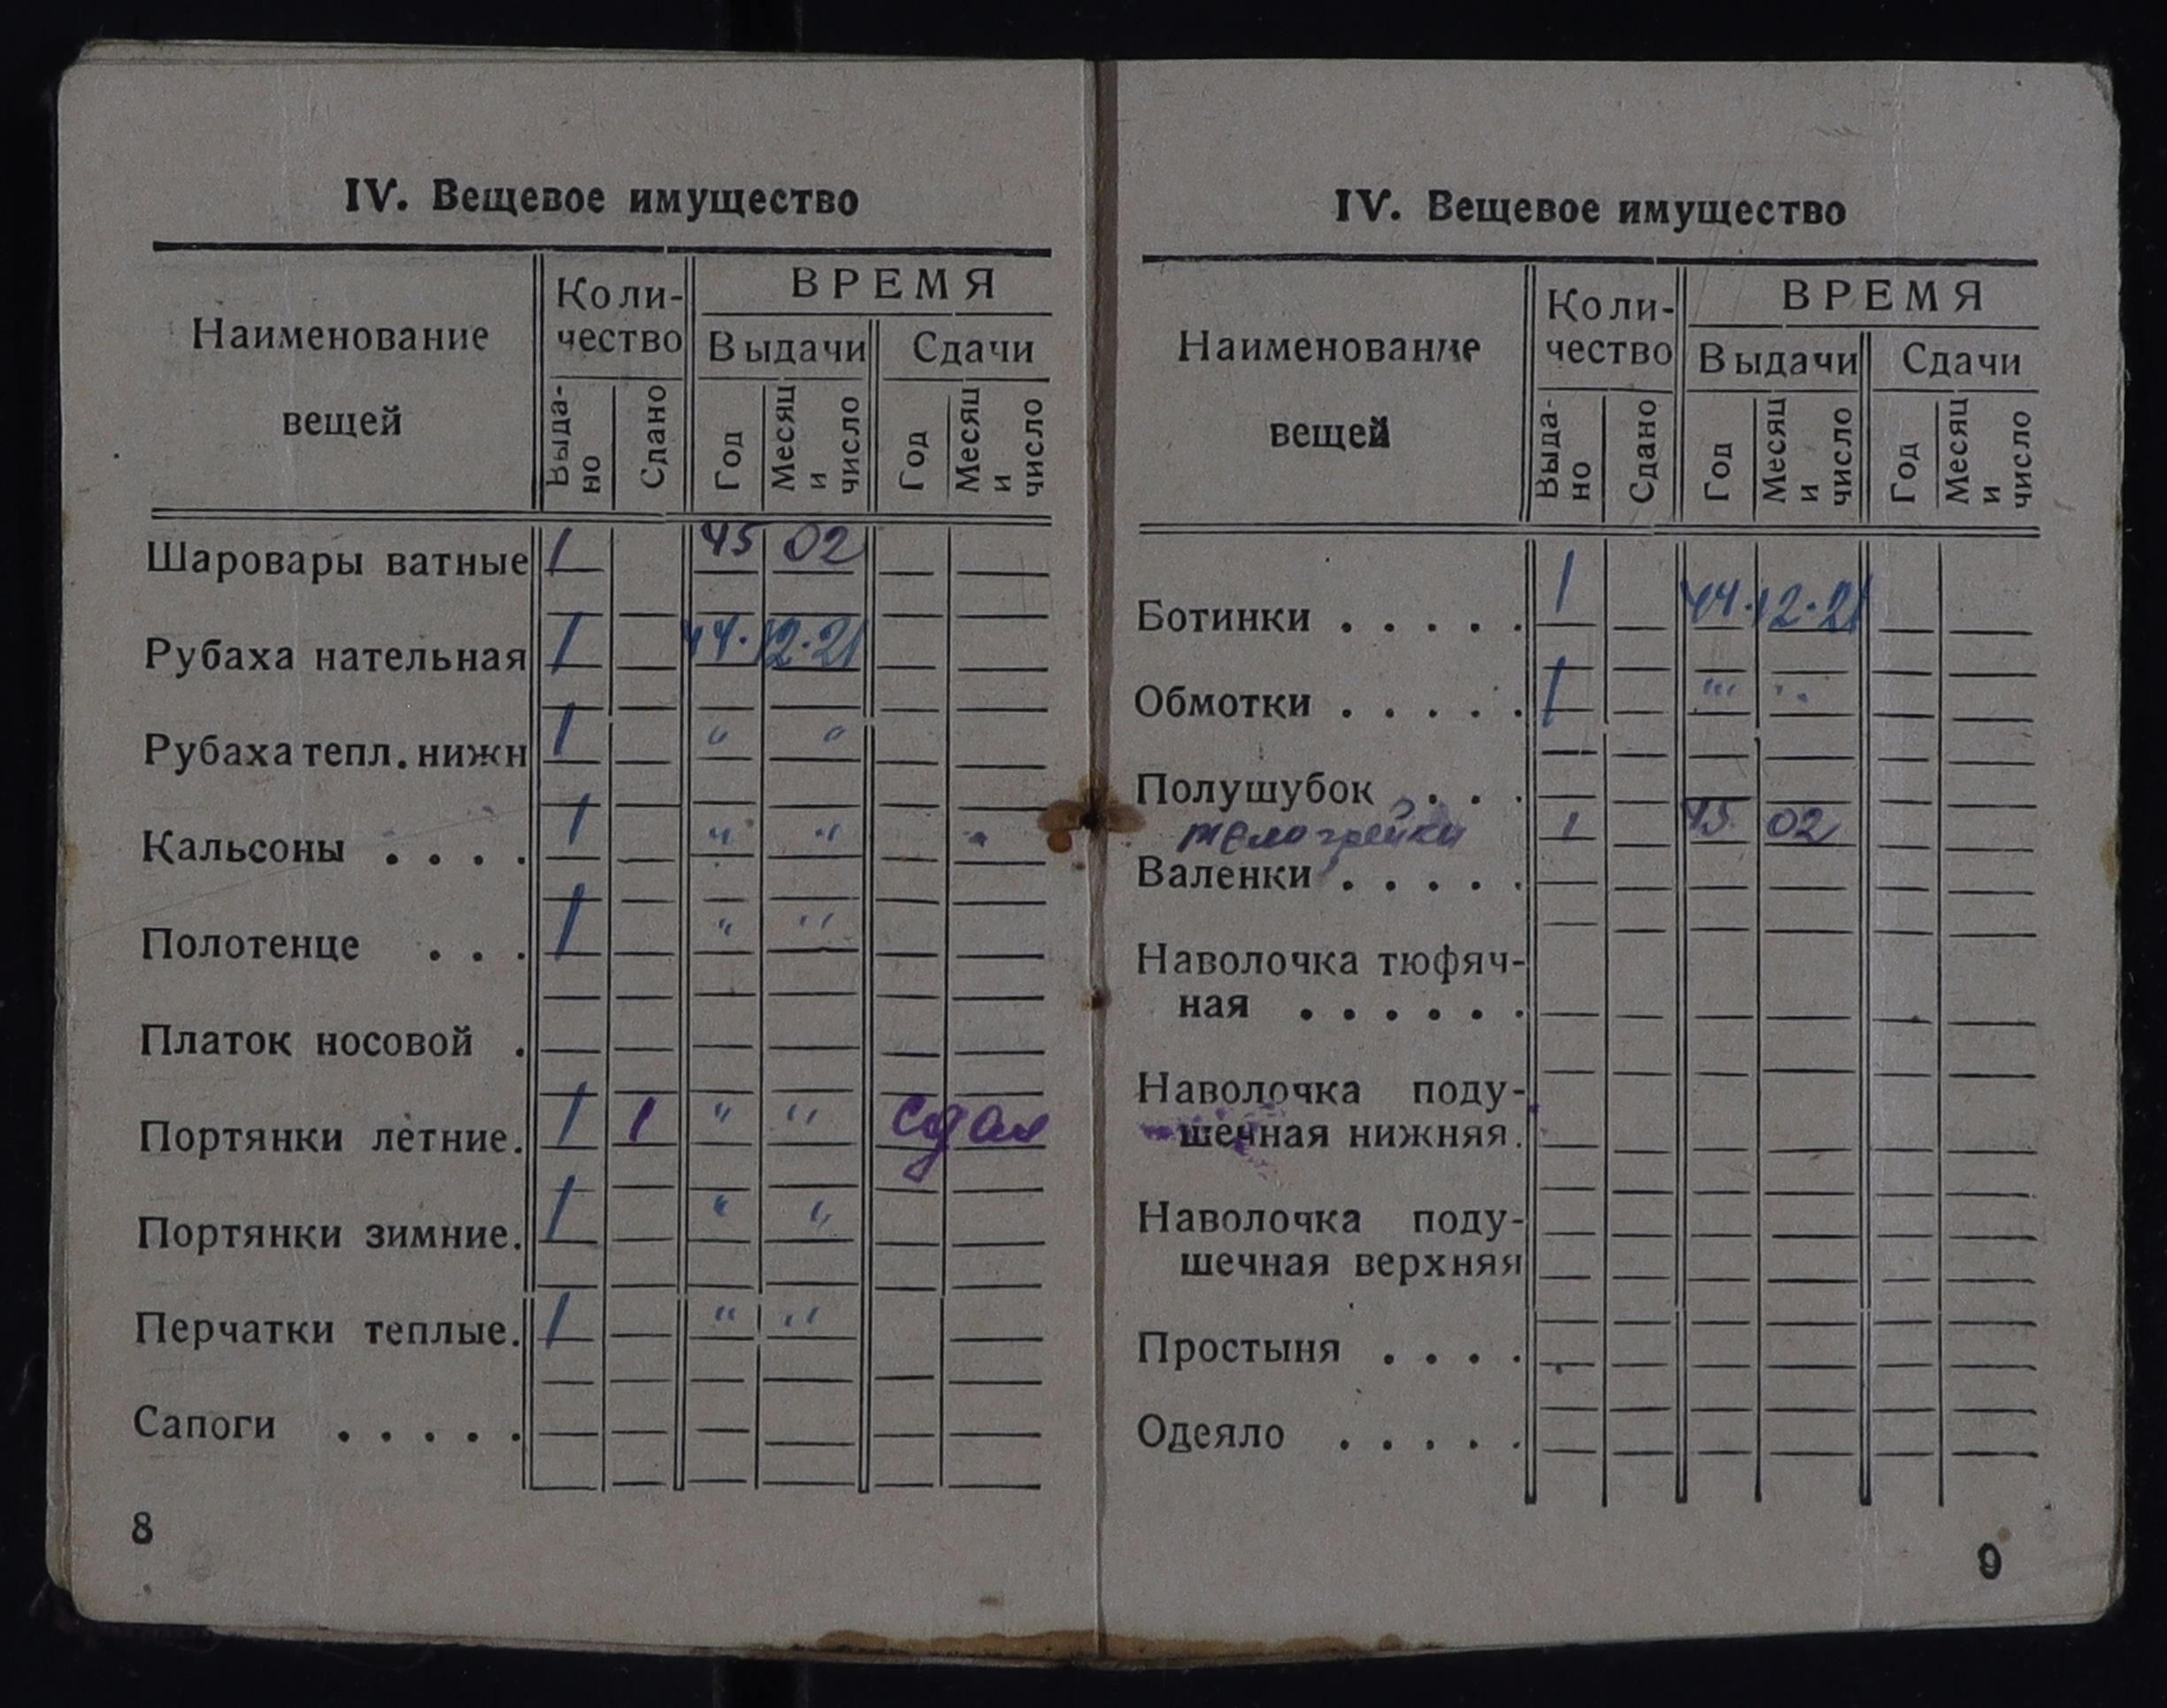 IV. Вещевое имущество
Наименование вещей
Коли-
чество
ВРЕМЯ
Выдачи
Сдачи
Выда-
но
Сдано
Год
Месяц
и
число
Год
Месяц
и
число
Шаровары ватные 1 45 02
Рубаха нательная 1 44. 12. 21
Рубаха тепл. нижн 1 " "
Кальсоны . . . . 1 " "
Полотенце . . . 1 " "
Платок носовой .
Портянки летние. 1 1 " " сдал
Портянки зимние. 1 " "
Перчатки теплые. 1 " "
Сапоги . . . . .
8
IV. Вещевое имущество
Наименование вещей
Коли-
чество
ВРЕМЯ
Выдачи
Сдачи
Выда-
но
Сдано
Год
Месяц
и
число
Год
Месяц
и
число
Ботинки . . . . . 1 44. 12. 21
Обмотки . . . . . 1 " "
Полушубок . . .
телогрейки 1 45 02
Валенки . . . . .
Наволочка тюфяч-
ная . . . . . .
Наволочка поду-
шечная нижняя.
Наволочка поду-
шечная верхняя
Простыня . . . .
Одеяло . . . . .
9